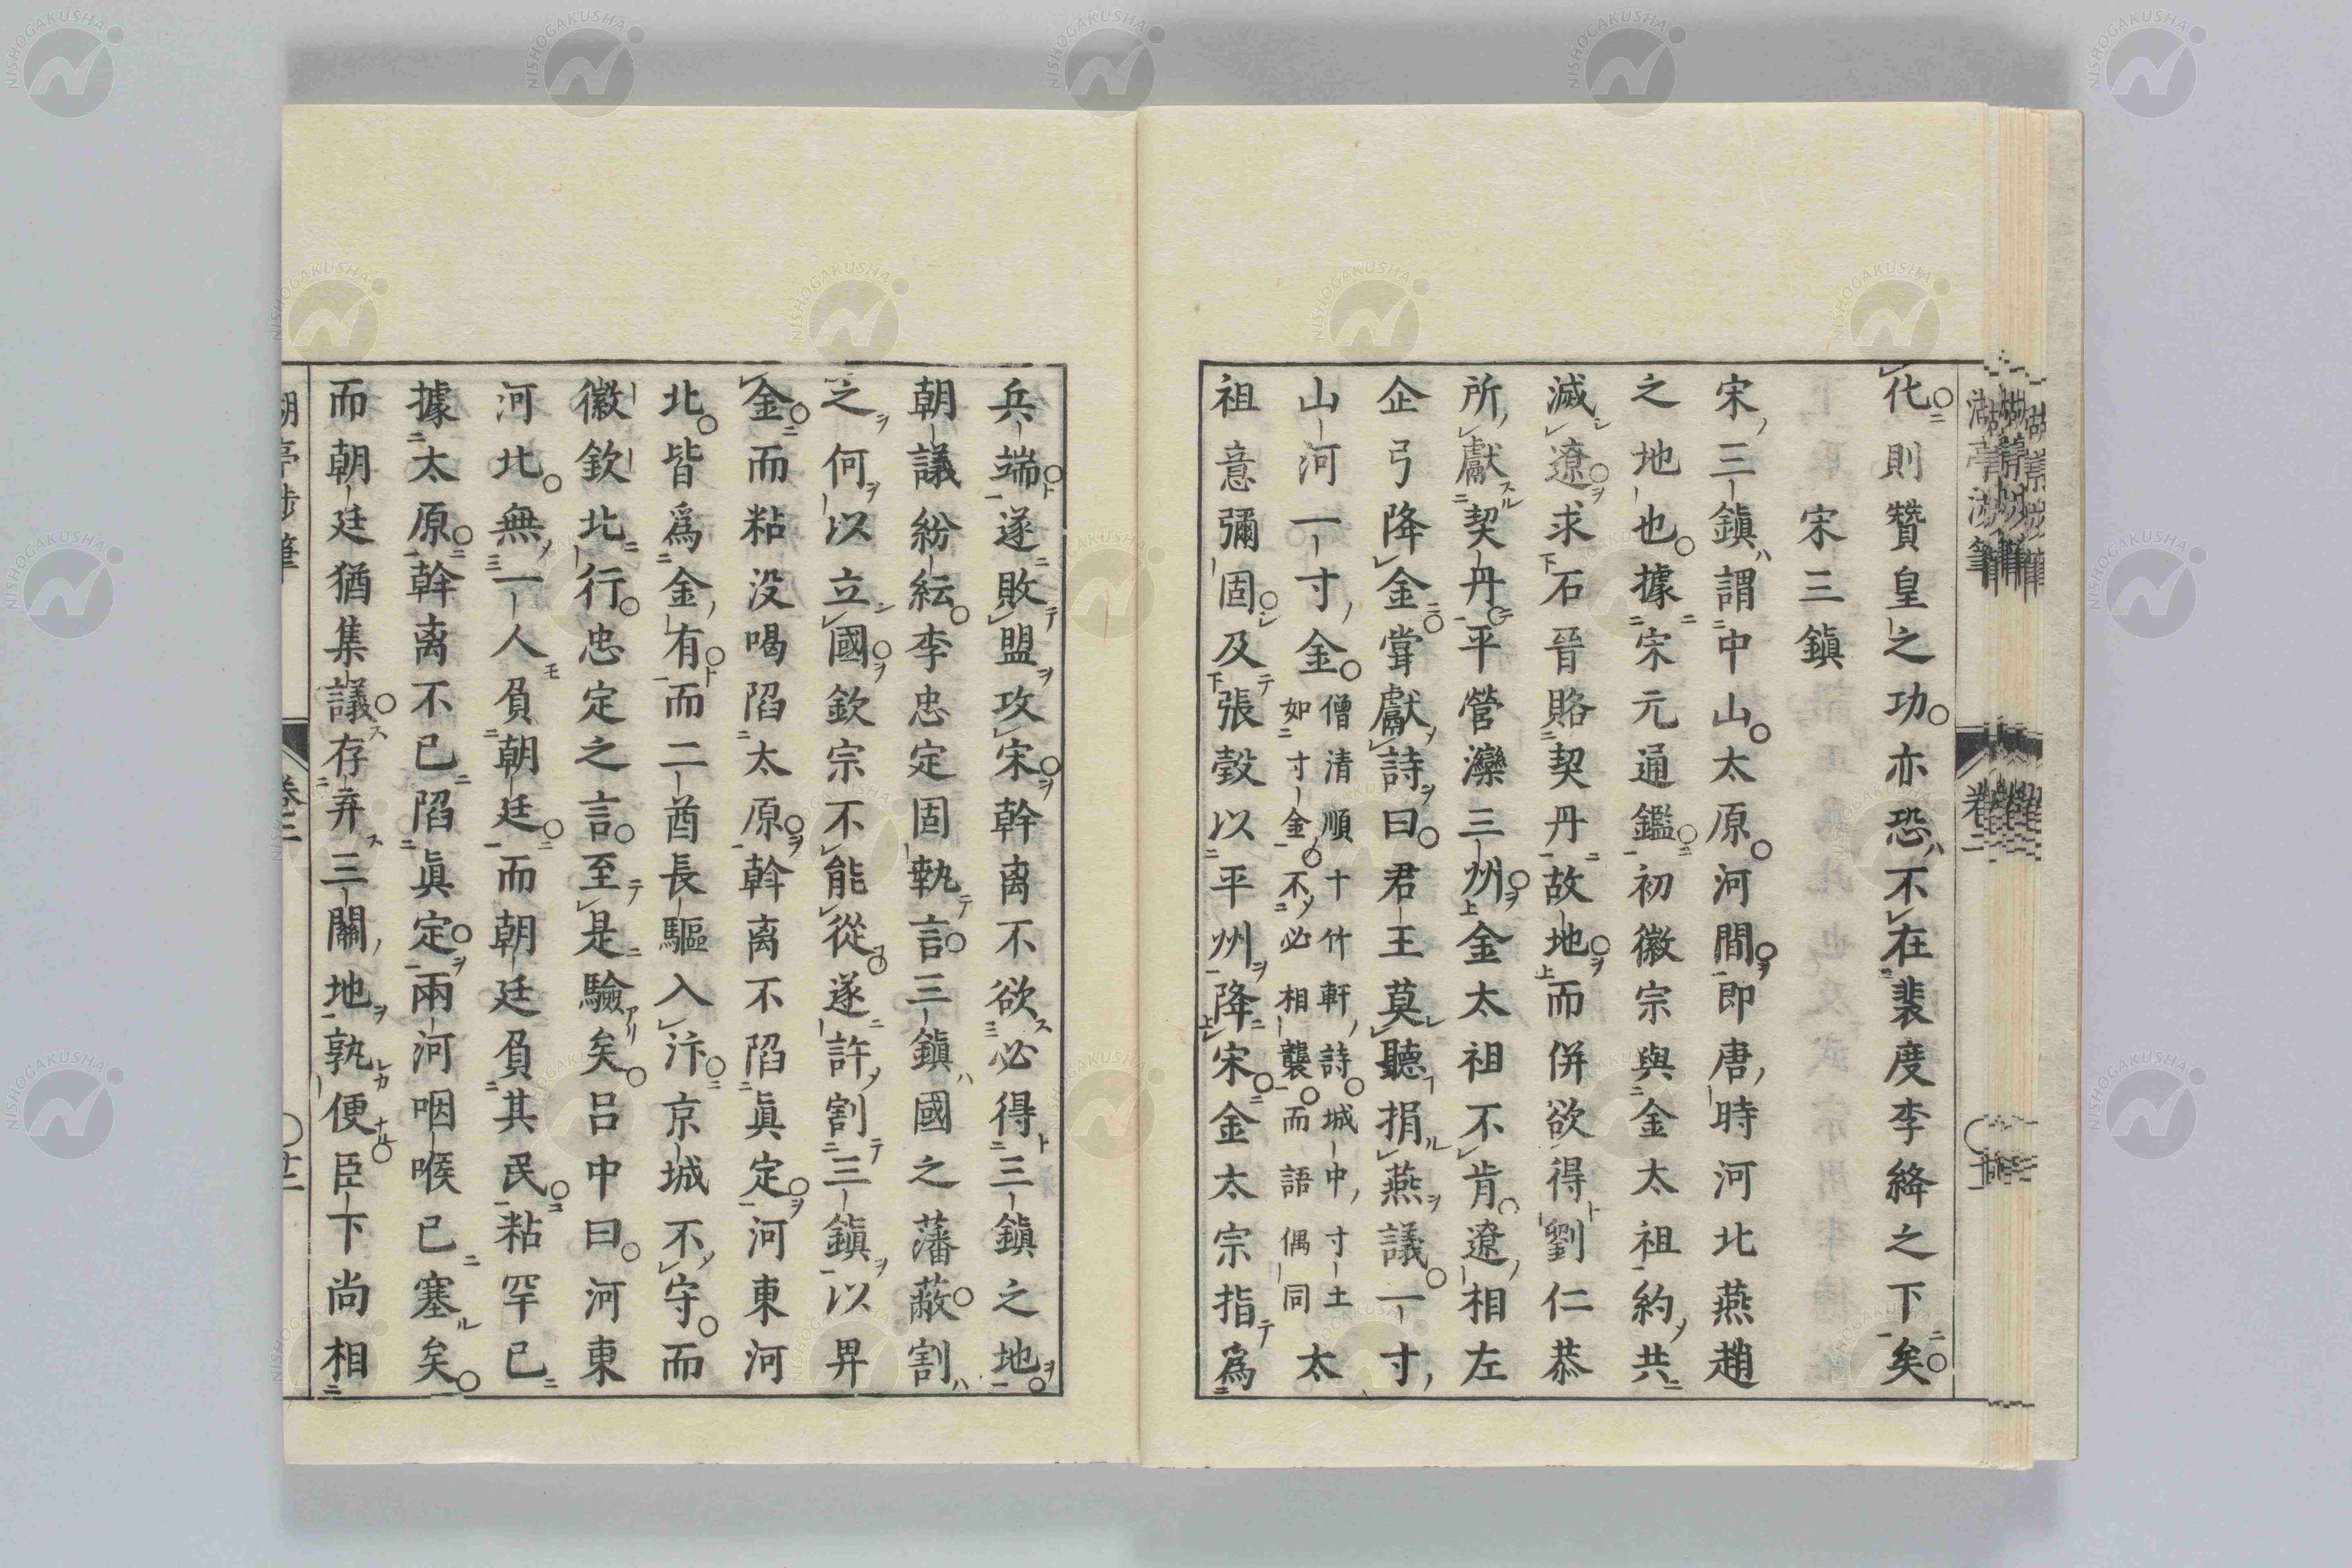 化則贊皇之功亦恐不在裴度李絳之下矣
宋三鎮
宋三鎮謂中山太原河間即唐時河北燕趙
之地也據宋元通鑑初徽宗與金太祖約共
滅遼求石晉賂契丹故地而併欲得劉仁恭
所獻契丹平營灤三州金太祖不肯遼相左
企弓降金嘗獻詩曰君王莫聽捐燕議一寸
山河一寸金
僧清順十竹軒詩城中寸土
如寸金不必相襲而語偶同
太
祖意彌固及張瑴以平州降宋金太宗指為
兵端遂敗盟攻宋幹离不欲必得三鎮之地
朝議紛紜李忠定固執言三鎮國之藩蔽割
之何以立國欽宗不能從遂許割三鎮以畀
金而粘没喝陷太原幹离不陷眞定河東河
北皆為金有而二酋長驅入汴京城不守而
徽欽北行忠定之言至是驗矣呂中曰河東
河北無一人負朝廷而朝廷負其民粘罕已
據太原幹离不已陷眞定兩河咽喉已塞矣
而朝廷猶集議存弃三關地孰便臣下尚相
卷二
NISHOGAKUSHA